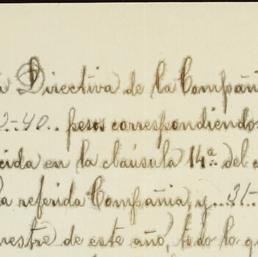 Directiva de la Compañi
2-40.. pesos correspondiendo
cida en la cláusula 14ª del
a referida Compañia, y..31-
mestre de este año, todo lo q